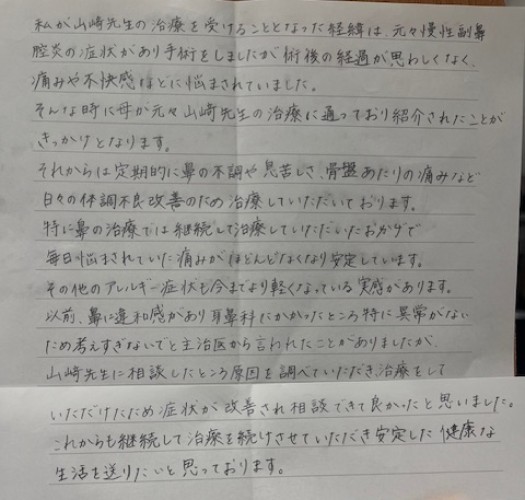 私が山崎先生の治療を受けることとなった経緯は、元々慢性副鼻
腔炎の症状があり手術をしましたが術後の経過が思わしくなく、
痛みや不快感などに悩まされていました。
そんな時に母が元々山崎先生の治療に通っており紹介されたことが
きっかけとなります。
それからは定期的に鼻の不調や息苦しさ、骨盤あたりの痛みなど
日々の体調不良改善のため治療していただいております。
特に鼻の治療では継続して治療していただいたおかげで
毎日悩まされていた痛みがほとんどなくなり安定しています。
その他のアレルギー症状も今までより軽くなっている実感があります。
以前、鼻に違和感があり耳鼻科にかかったところ特に異常がない
ため考えすぎないでと主治医から言われたことがありましたが、
山崎先生に相談したところ原因を調べていただき治療をして
いただけたため症状が改善され相談できて良かったと思いました。
これからも継続して治療を続けさせていただき安定した健康な
生活を送りたいと思っております。